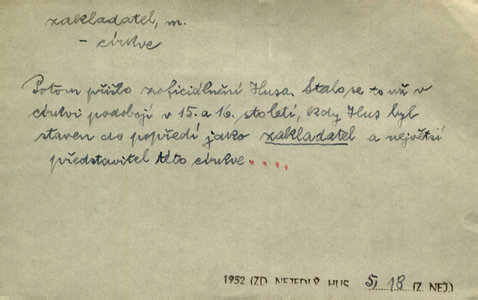 zakladatel, m.
- církve
Potom přišlo zoficiálnění Husa. Stalo se to už v
církvi podobojí v 15. a 16. století, kdy Hus byl
staven do popředí jako zakladatel a největší
představitel této církve....
1952 (ZD. NEJEDLÝ, HUS 5, 18 (Z. NEJ.)